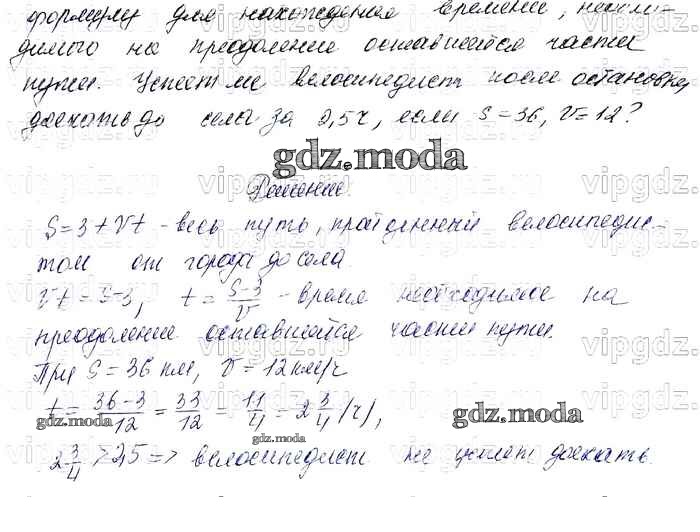 формулу для нахождения времени, необхо-
димого на преодоление оставшейся части
пути. Успеет ли велосипедист после остановки
доехать до села за 2,5ч, если S=36, V=12?
gdz.moda
Решение.
S=3+Vt - весь путь, пройденный велосипедис-
том от города до села.
Vt=S-3, t=\frac{S-3}{V} - время необходимое на
преодоление оставшейся части пути.
При S=36 км, V=12 км/ч
t=\frac{36-3}{12}=\frac{33}{12}=\frac{11}{4}=2\frac{3}{4}(ч),
gdz.moda gdz.moda
gdz.moda
2\frac{3}{4}>2,5=> велосипедист не успеет доехать.